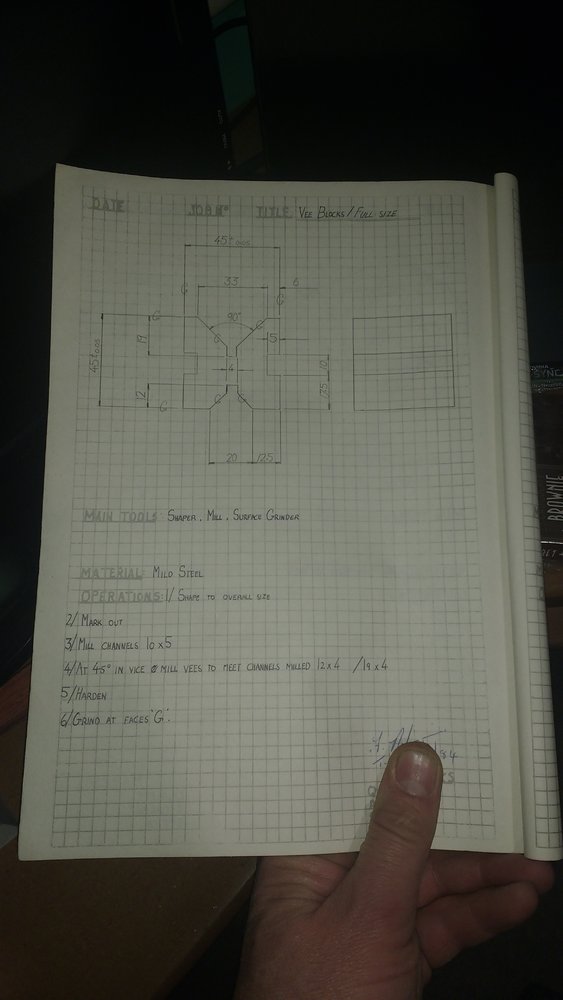 DATE JOB Nº TITLE VEE BLOCKS / FULL SIZE
45 ± 0.05
33
6
G
G
G
90°
G
G
5
45 ± 0.05
19
4
10
12
G
G
G
17.5
20
12.5
MAIN TOOLS: SHAPER, MILL, SURFACE GRINDER
MATERIAL: MILD STEEL
OPERATIONS: 1/ SHAPE TO OVERALL SIZE
2/ MARK OUT
3/ MILL CHANNELS 10 x 5
4/ AT 45° IN VICE MILL VEES TO MEET CHANNELS MILLED 12 x 4 / 19 x 4
5/ HARDEN
6/ GRIND AT FACES "G".
84
SYNC
BROWNIE